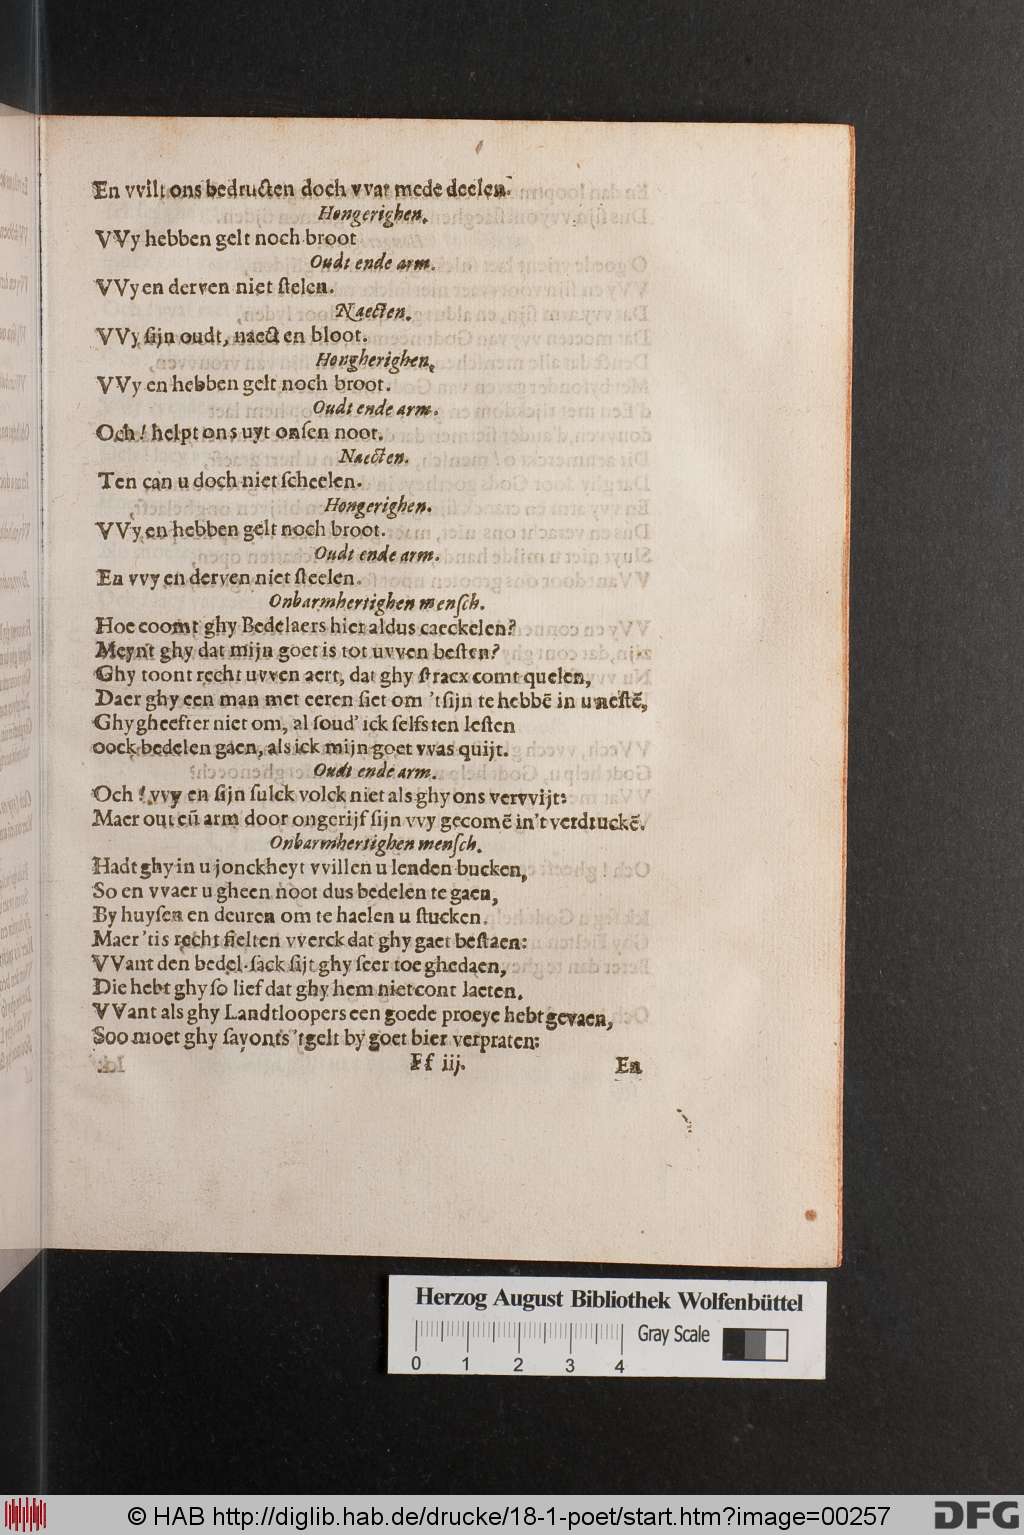 En vvilt ons bedructen doch vvat mede deelen.
Hongerighen.
VVy hebben gelt noch broot
Oudt ende arm.
VVy en derven niet ſtelen.
Naecten.
VVy ſijn oudt, naect en bloot.
Hongherighen,
VVy en hebben gelt noch broot.
Oudt ende arm.
Och! helpt ons uyt onſen noot.
Naecten.
Ten can u doch niet ſcheelen.
Hongerighen.
VVy en hebben gelt noch broot.
Oudt ende arm.
En vvy en derven niet ſteelen.
Onbarmhertighen menſch.
Hoe coomt ghy Bedelaers hier aldus caeckelen?
Meynt ghy dat mijn goet is tot uvven beſten?
Ghy toont recht uvven aert, dat ghy ſtracx comt quelen,
Daer ghy een man met eeren ſiet om 'tſijn te hebbē in u neſtē,
Ghy gheefter niet om, al ſoud' ick ſelfs ten leſten
oock bedelen gaen, als ick mijn goet vvas quijt.
Oudt ende arm.
Och! vvy en ſijn ſulck volck niet als ghy ons vervvijt:
Maer out eñ arm door ongerijf ſijn vvy gecomē in't verdruckē.
Onbarmhertighen menſch.
Hadt ghy in u jonckheyt vvillen u lenden bucken,
So en vvaer u gheen noot dus bedelen te gaen,
By huyſen en deuren om te haelen u ſtucken.
Maer 'tis recht fielten vverck dat ghy gaet beſtaen:
VVant den bedel-ſack ſijt ghy ſeer toe ghedaen,
Die hebt ghy ſo lief dat ghy hem niet cont laeten.
VVant als ghy Landtloopers een goede proeye hebt gevaen,
Soo moet ghy ſavonts 'tgelt by goet bier verpraten:
Ff iij.
En
Herzog August Bibliothek Wolfenbüttel
Gray Scale
0 1 2 3 4
© HAB http://diglib.hab.de/drucke/18-1-poet/start.htm?image=00257
DFG